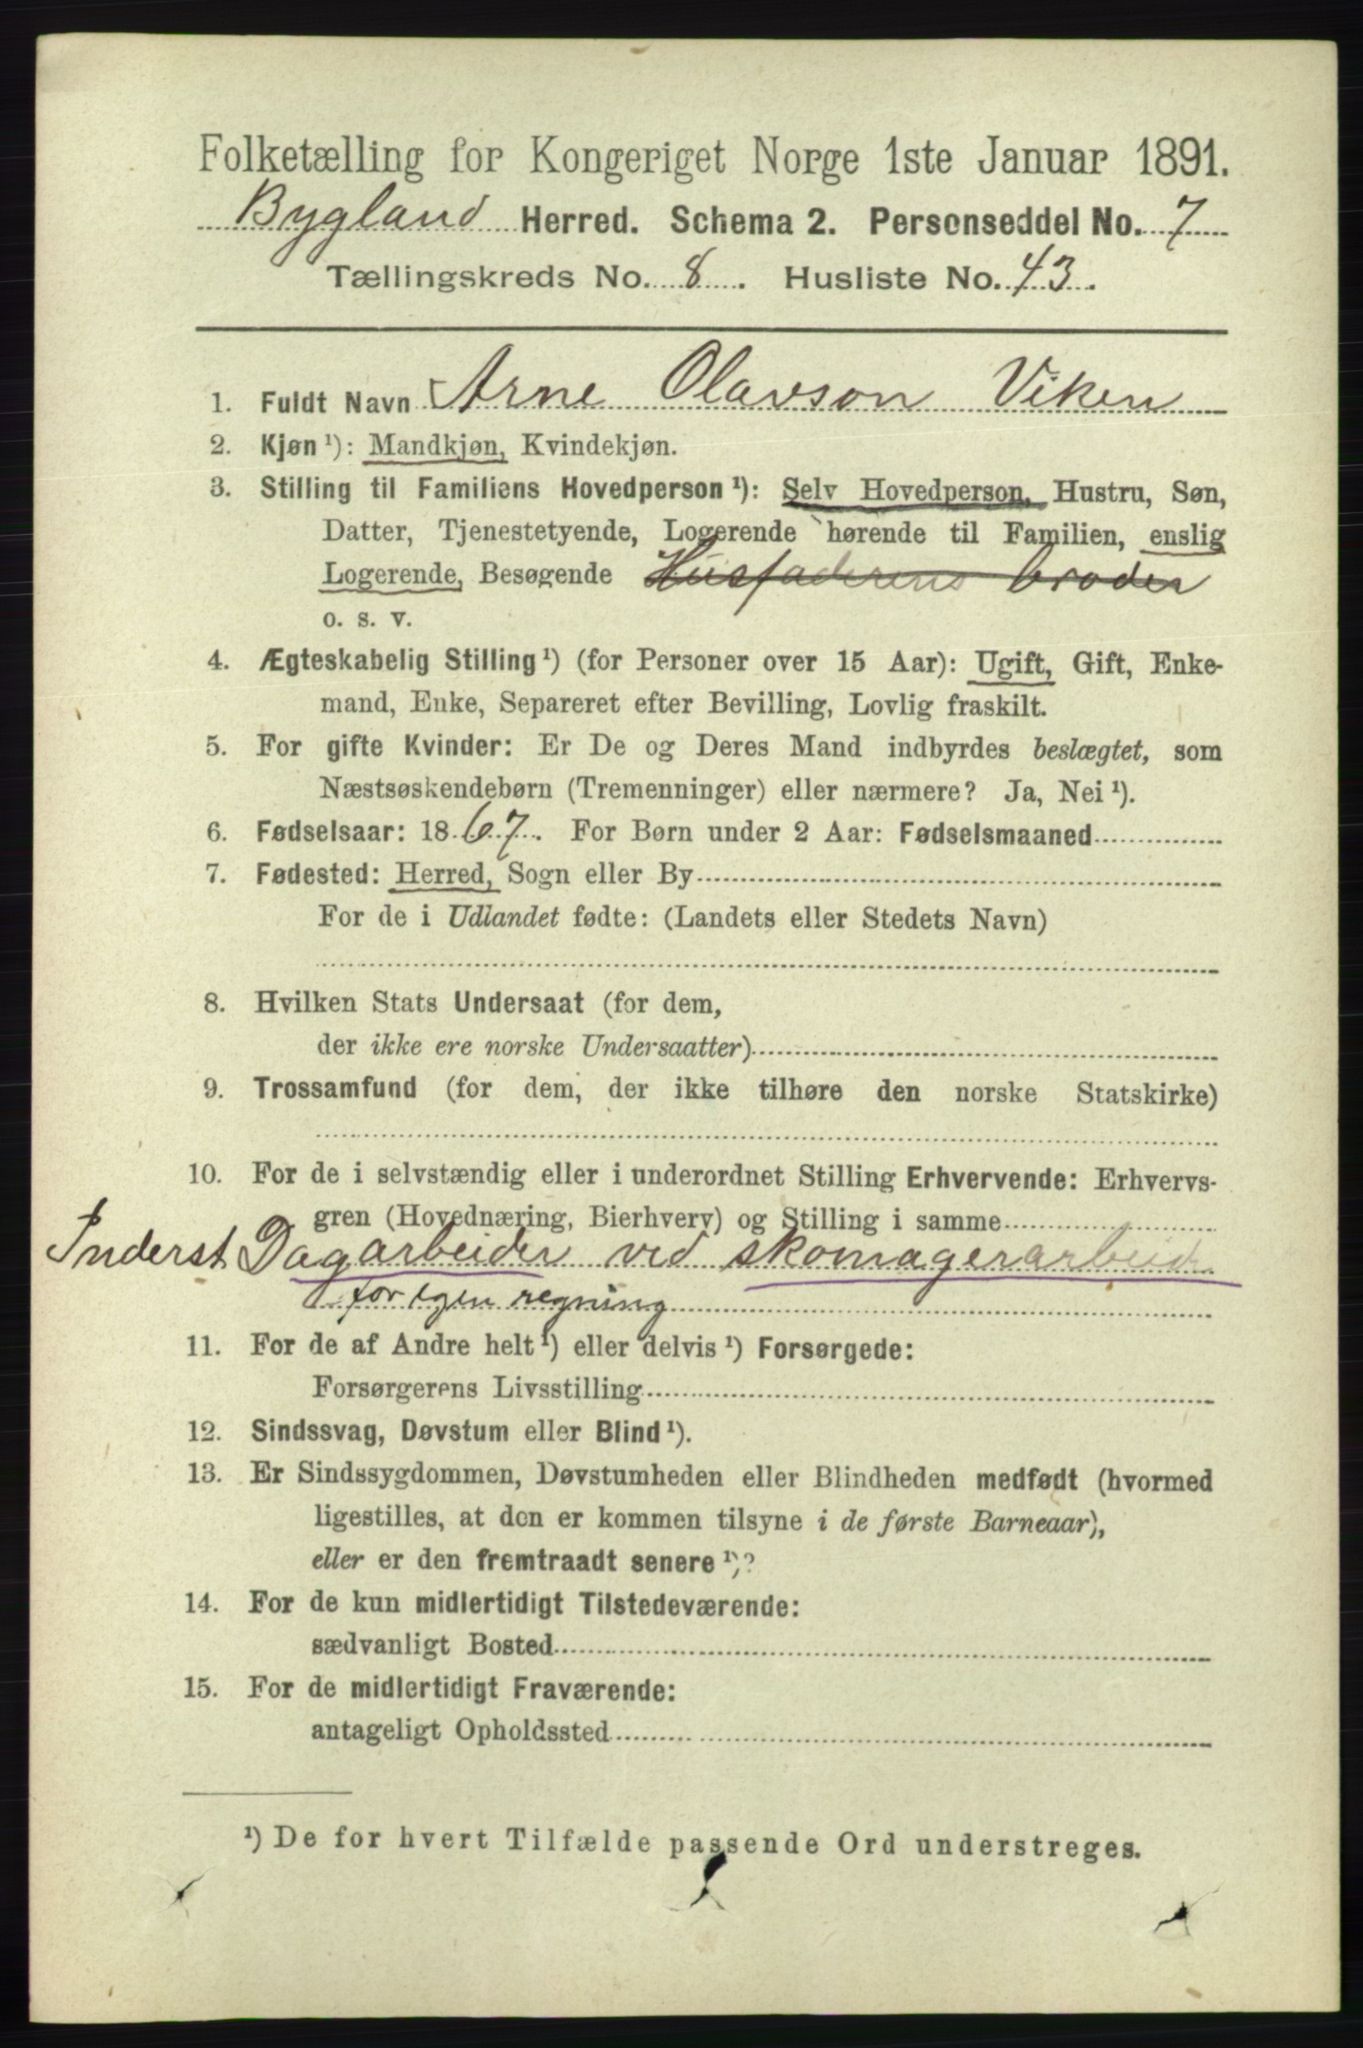 Folketælling for Kongeriget Norge 1ste Januar 1891.
Bygland Herred. Schema 2. Personseddel No. 7
Tællingskreds No. 8. Husliste No. 43.
1. Fuldt Navn Arne Olavson Viken
2. Kjøn¹): Mandkjøn, Kvindekjøn.
3. Stilling til Familiens Hovedperson¹): Selv Hovedperson, Hustru, Søn,
Datter, Tjenestetyende, Logerende hørende til Familien, enslig
Logerende, Besøgende Husfaderens broder
o. s. v.
4. Ægteskabelig Stilling¹) (for Personer over 15 Aar): Ugift, Gift, Enke-
mand, Enke, Separeret efter Bevilling, Lovlig fraskilt.
5. For gifte Kvinder: Er De og Deres Mand indbyrdes beslægtet, som
Næstsøskendebørn (Tremenninger) eller nærmere? Ja, Nei¹).
6. Fødselsaar: 1867. For Børn under 2 Aar: Fødselsmaaned
7. Fødested: Herred, Sogn eller By
For de i Udlandet fødte: (Landets eller Stedets Navn)
8. Hvilken Stats Undersaat (for dem,
der ikke ere norske Undersaatter)
9. Trossamfund (for dem, der ikke tilhøre den norske Statskirke)
10. For de i selvstændig eller i underordnet Stilling Erhvervende: Erhvervs-
gren (Hovednæring, Bierhverv) og Stilling i samme
Inderst Dagarbeider ved skomagerarbeide
for egen regning
11. For de af Andre helt¹) eller delvis¹) Forsørgede:
Forsørgerens Livsstilling
12. Sindssvag, Døvstum eller Blind¹).
13. Er Sindssygdommen, Døvstumheden eller Blindheden medfødt (hvormed
ligestilles, at den er kommen tilsyne i de første Barneaar),
eller er den fremtraadt senere¹)?
14. For de kun midlertidigt Tilstedeværende:
sædvanligt Bosted
15. For de midlertidigt Fraværende:
antageligt Opholdssted
¹) De for hvert Tilfælde passende Ord understreges.